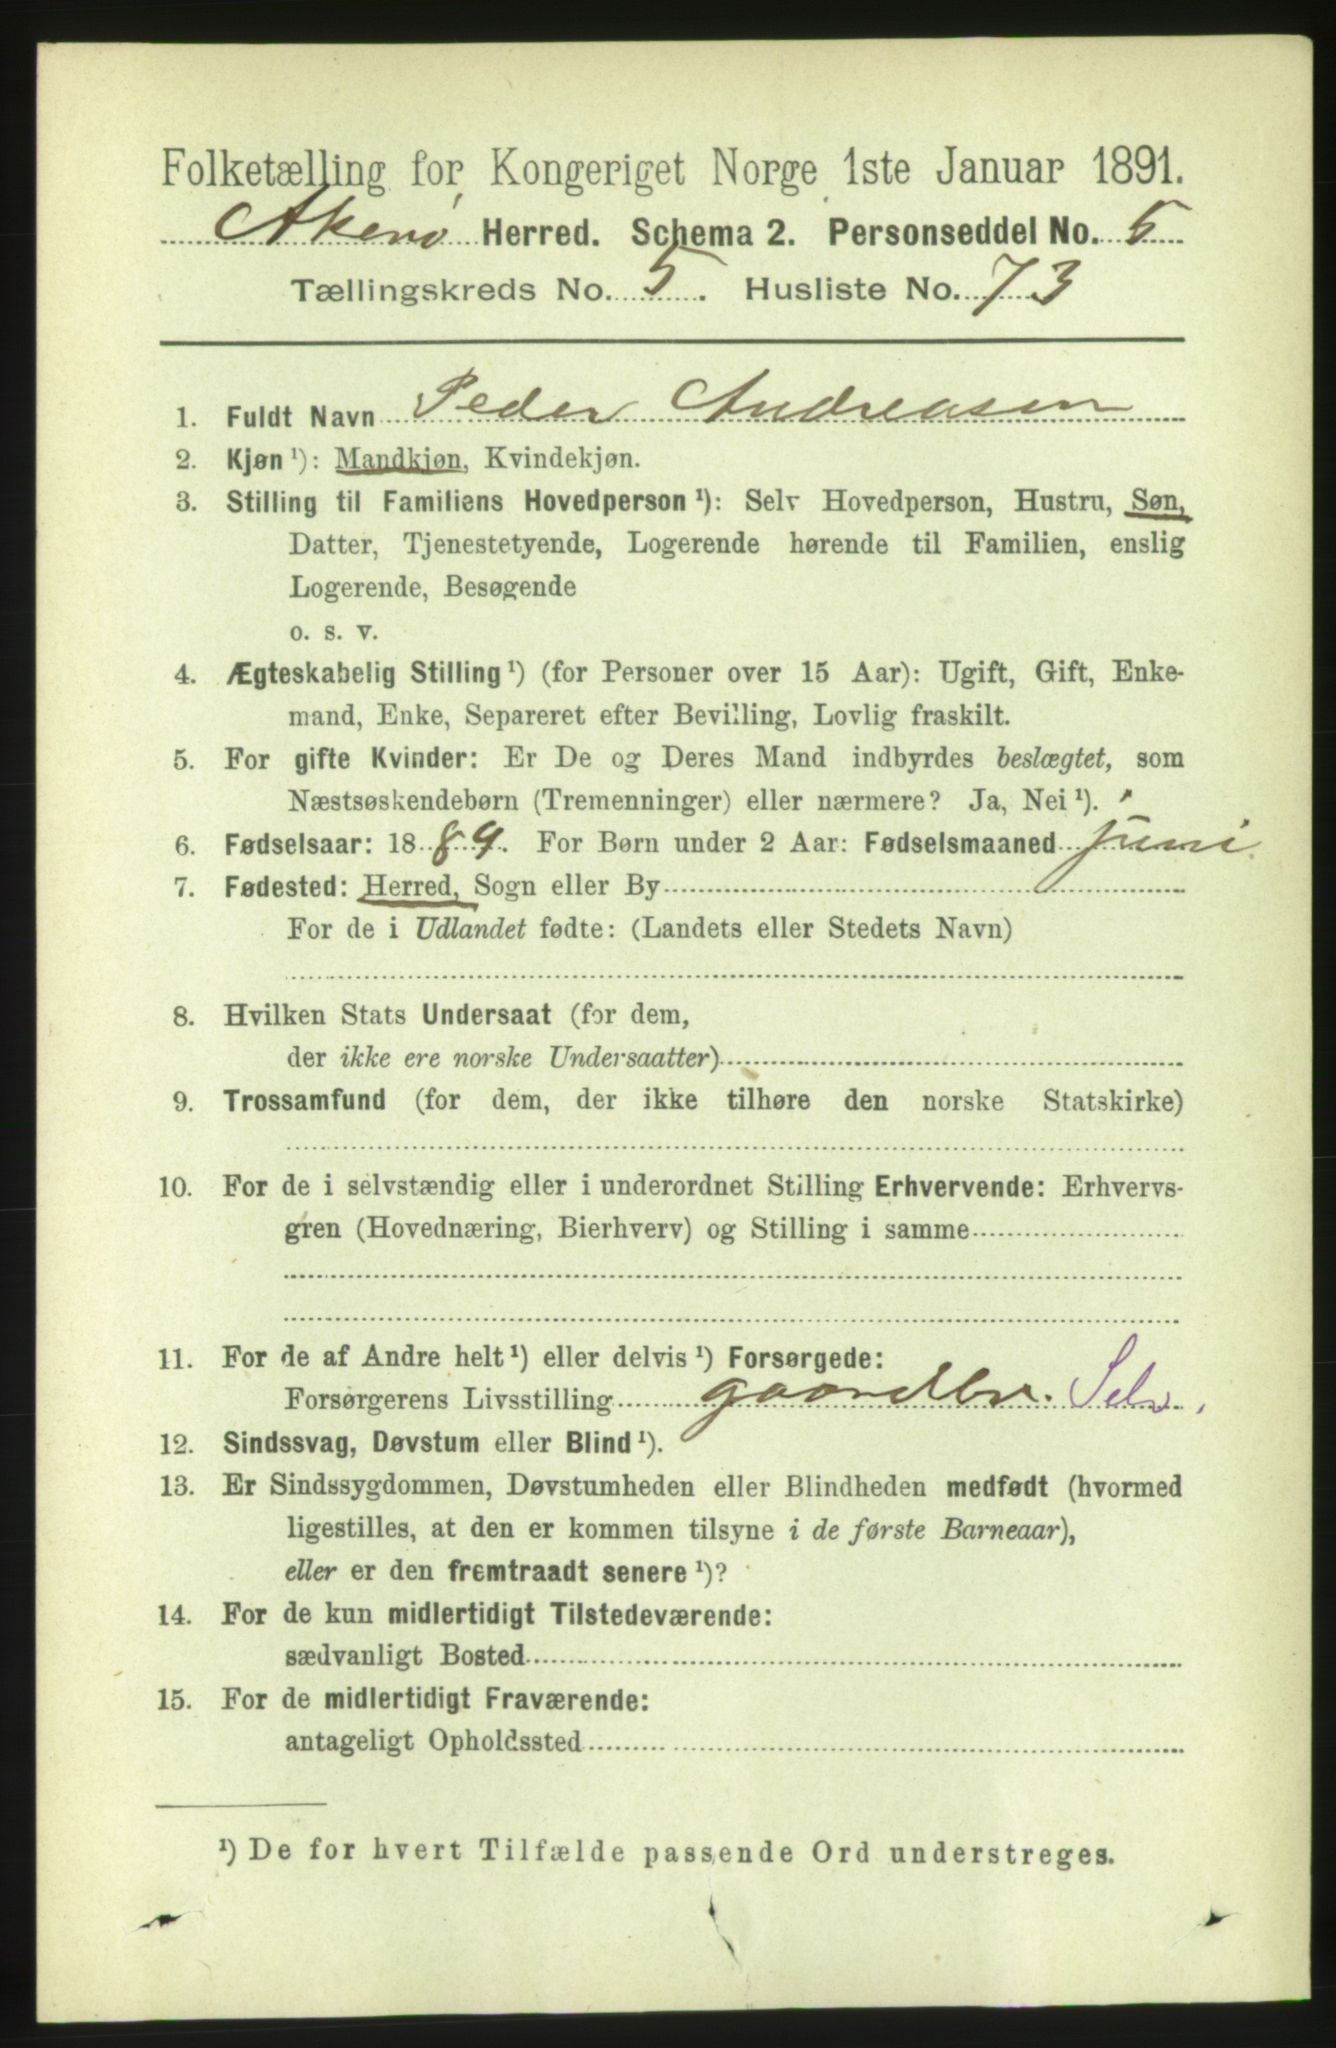 Folketælling for Kongeriget Norge 1ste Januar 1891.
Akerø Herred. Schema 2. Personseddel No. 5
Tællingskreds No. 5. Husliste No. 73
1. Fuldt Navn Peder Andreasen
2. Kjøn ¹): Mandkjøn, Kvindekjøn.
3. Stilling til Familiens Hovedperson ¹): Selv Hovedperson, Hustru, Søn,
Datter, Tjenestetyende, Logerende hørende til Familien, enslig
Logerende, Besøgende
o. s. v.
4. Ægteskabelig Stilling ¹) (for Personer over 15 Aar): Ugift, Gift, Enke-
mand, Enke, Separeret efter Bevilling, Lovlig fraskilt.
5. For gifte Kvinder: Er De og Deres Mand indbyrdes beslægtet, som
Næstsøskendebørn (Tremenninger) eller nærmere? Ja, Nei ¹).
6. Fødselsaar: 1889. For Børn under 2 Aar: Fødselsmaaned juni
7. Fødested: Herred, Sogn eller By
For de i Udlandet fødte: (Landets eller Stedets Navn)
8. Hvilken Stats Undersaat (for dem,
der ikke ere norske Undersaatter)
9. Trossamfund (for dem, der ikke tilhøre den norske Statskirke)
10. For de i selvstændig eller i underordnet Stilling Erhvervende: Erhvervs-
gren (Hovednæring, Bierhverv) og Stilling i samme
11. For de af Andre helt ¹) eller delvis ¹) Forsørgede:
Forsørgerens Livsstilling gaardbr. Selv.
12. Sindssvag, Døvstum eller Blind ¹).
13. Er Sindssygdommen, Døvstumheden eller Blindheden medfødt (hvormed
ligestilles, at den er kommen tilsyne i de første Barneaar),
eller er den fremtraadt senere ¹)?
14. For de kun midlertidigt Tilstedeværende:
sædvanligt Bosted
15. For de midlertidigt Fraværende:
antageligt Opholdssted
¹) De for hvert Tilfælde passende Ord understreges.